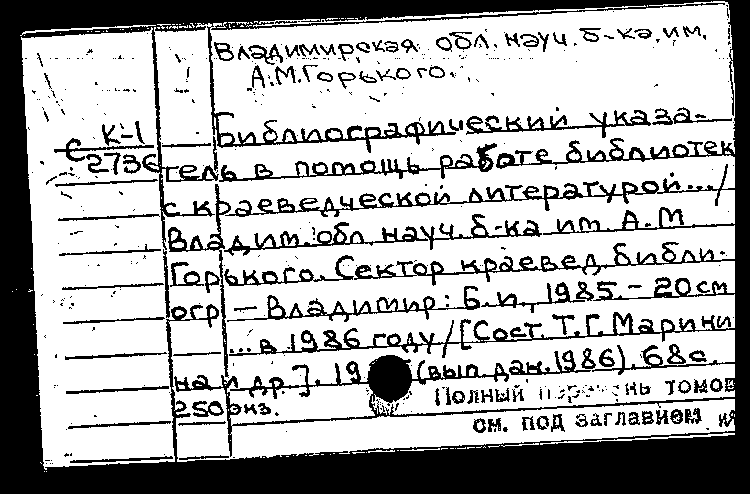 Владимирская обл. науч. б-ка им.
А.М.Горького.
Библиографический указа-
С К-1
2736
тель в помощь работе библиотек
с краеведческой литературой.../
Владим. обл. науч. б-ка им. А.М
Горького. Сектор краевед. библи-
огр. — Владимир: Б.и., 1985. - 20см
...в 1986 году/[Сост. Т.Г. Марини
на и др.]. 19 (вып. дан. 1986). 68с.
250 экз.
Полный перечень томов
см. под заглавием